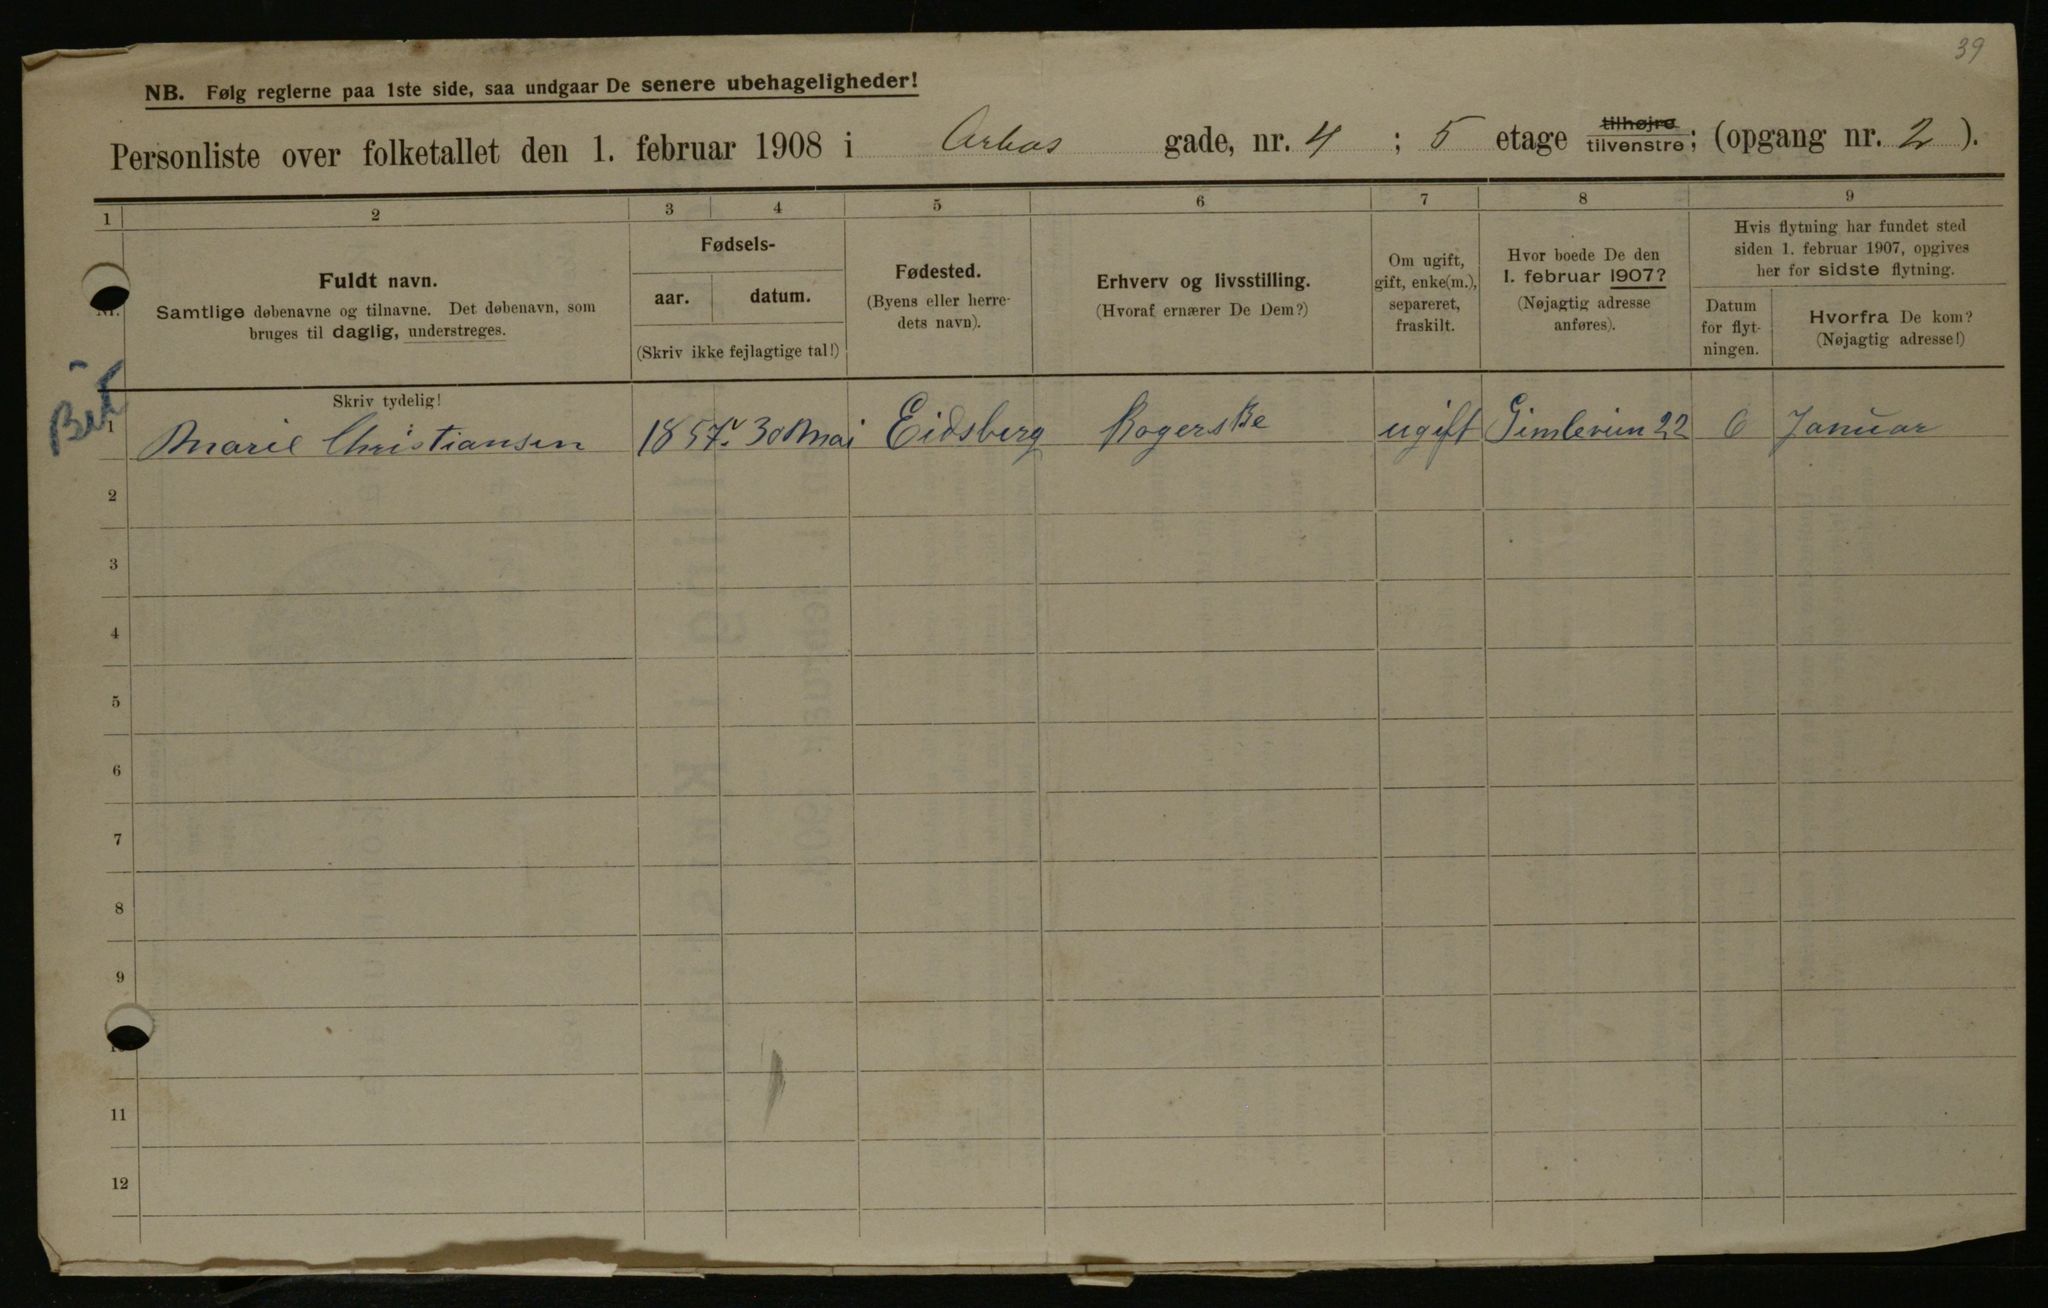 39
NB. Følg reglerne paa 1ste side, saa undgaar De senere ubehageligheder!
Personliste over folketallet den 1. februar 1908 i Arbos gade, nr. 4 ; 5 etage tilhøjre tilvenstre; (opgang nr. 2 ).
1 2 3 4 5 6 7 8 9
Nr.
Fuldt navn.
Samtlige døbenavne og tilnavne. Det døbenavn, som
bruges til daglig, understreges.
Fødsels-
aar. datum.
(Skriv ikke fejlagtige tal!)
Fødested.
(Byens eller herre-
dets navn).
Erhverv og livsstilling.
(Hvoraf ernærer De Dem?)
Om ugift,
gift, enke(m.),
separeret,
fraskilt.
Hvor boede De den
1. februar 1907?
(Nøjagtig adresse
anføres).
Hvis flytning har fundet sted
siden 1. februar 1907, opgives
her for sidste flytning.
Datum
for flyt-
ningen.
Hvorfra De kom?
(Nøjagtig adresse!)
Skriv tydelig!
1 Marie Christiansen 1857 30 Mai Eidsberg Kogerske ugift Gimleveien 22 6 Januar
2
3
4
5
6
7
8
9
10
11
12